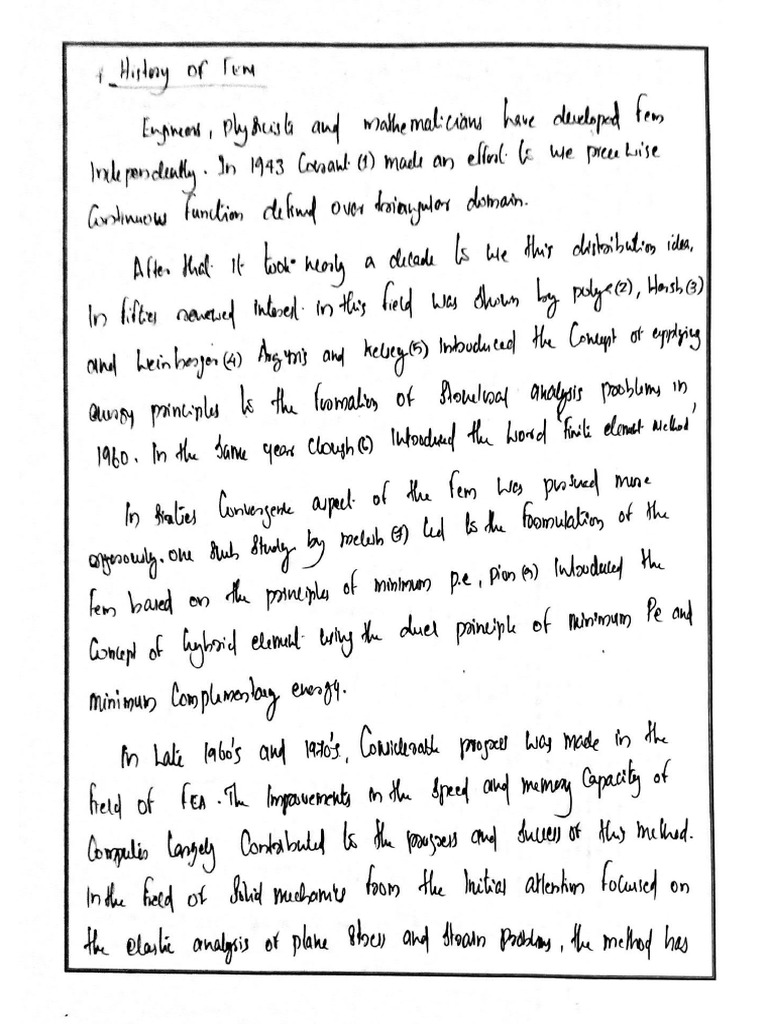 History of FEM
Engineers, physicists and mathematicians have developed Fem
Independently. In 1943 Courant (1) made an effort to use piece wise
Continuous Function defined over triangular domain.
After that it took nearly a decade to use this distribution idea.
In fifties renewed interest in this field was shown by polya(2), Hersh(3)
and Weinberger(4) Argyris and Kelsey(5) Introduced the Concept of applying
energy principles to the formation of Structural analysis problems in
1960. In the same year Clough(6) Introduced the word 'finite element method'
In sixties Convergence aspect of the Fem was pursued more
rigorously. one such study by melosh(7) led to the formulation of the
Fem based on the principles of minimum p.e, pian Introduced the
Concept of hybrid element using the duel principle of minimum Pe and
minimum Complementary energy.
In Late 1960's and 1970's, Considerable progress was made in the
field of FEA. The Improvements in the speed and memory Capacity of
Computers largely Contributed to the progress and success of this method.
In the field of Solid mechanics from the Initial attention focused on
the elastic analysis of plane stress and strain problems, the method has